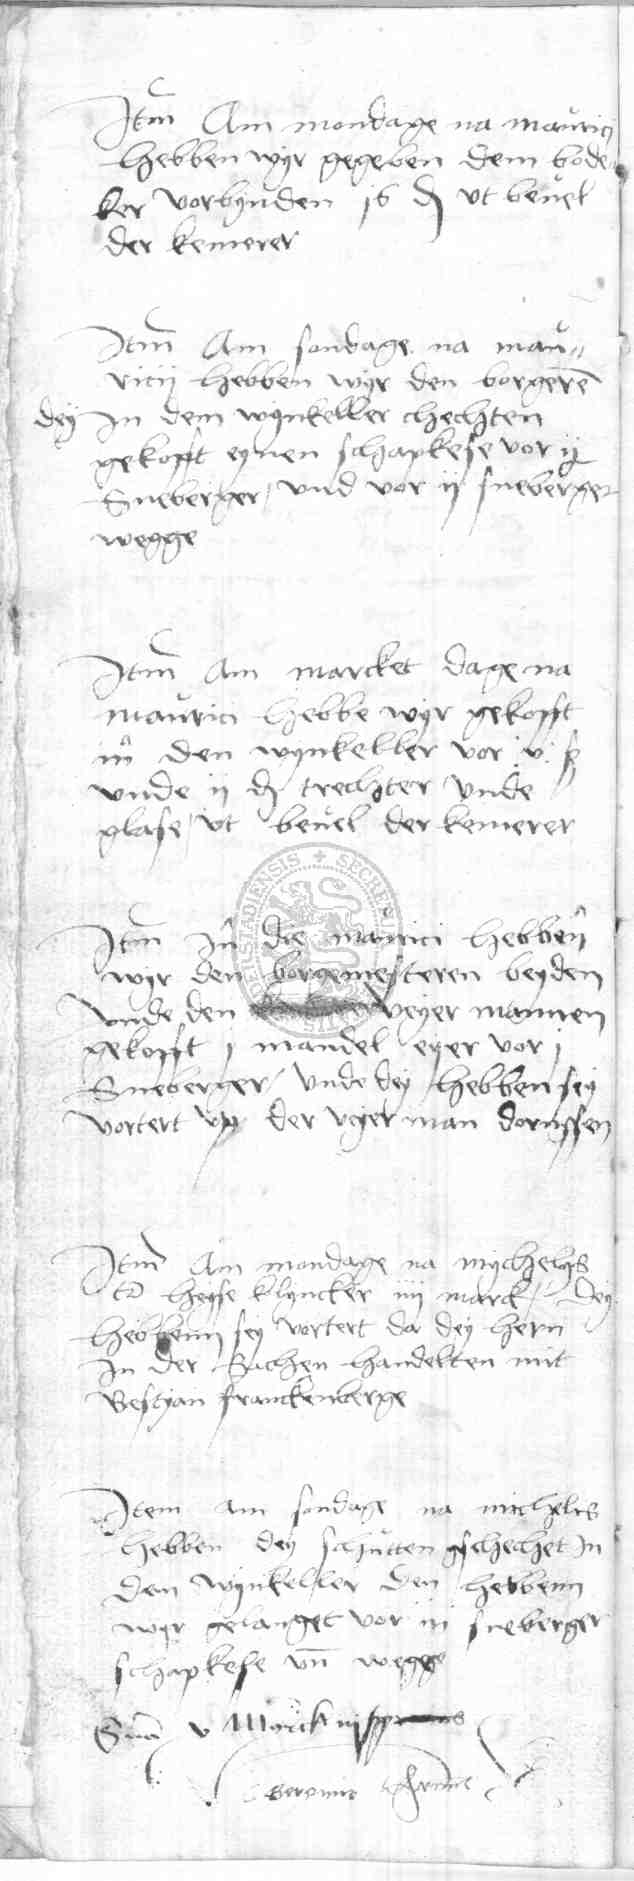 Itm Am mondage na maurici
hebben wyr gegeben dem bode
ker vorbynden 16 d ut beuel
der kemerer
Itm Am sondage na mau
ricij hebben wyr den borgere
dey In dem wynkeller chechten
gekofft eynen schapkese vor ij
Sneberger und vor ij sneberger
wegge
Itm Am marcket dage na
maurici hebbe wyr gekofft
in den wynkeller vor v s
unde ij d trechter unde
glase ut beuel der kemerer
Itm In die maurici hebben
wyr den borgemesteren beyden
unde den veyer mannen
gekofft j mandel eyer vor j
Sneberger unde dey hebben sey
vortert up der veyer man dornssen
Itm Am mondage na mychelys
heyse klyncker iiij marck dey
hebbenn sey vortert do dey hern
In der Sachen handelten mit
Bestyan franckenberge
Item am sondage na michelis
hebben dey schutten gechechet In
dem wynkeller den hebbenn
wyr gelanget vor iij sneberger
schapkese un wegge
Sma v Marck
SECRET DIENSIS